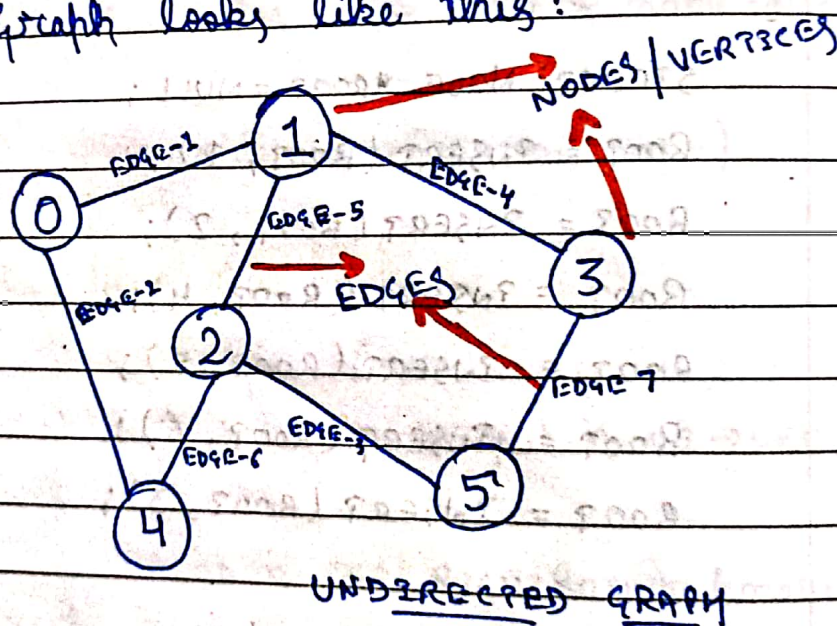 Graph looks like this:
NODES/VERTICES
1
EDGE-1
EDGE-4
0
EDGE-5
3
EDGES
EDGE-2
2
EDGE-7
EDGE-3
EDGE-6
5
4
UNDIRECTED GRAPH